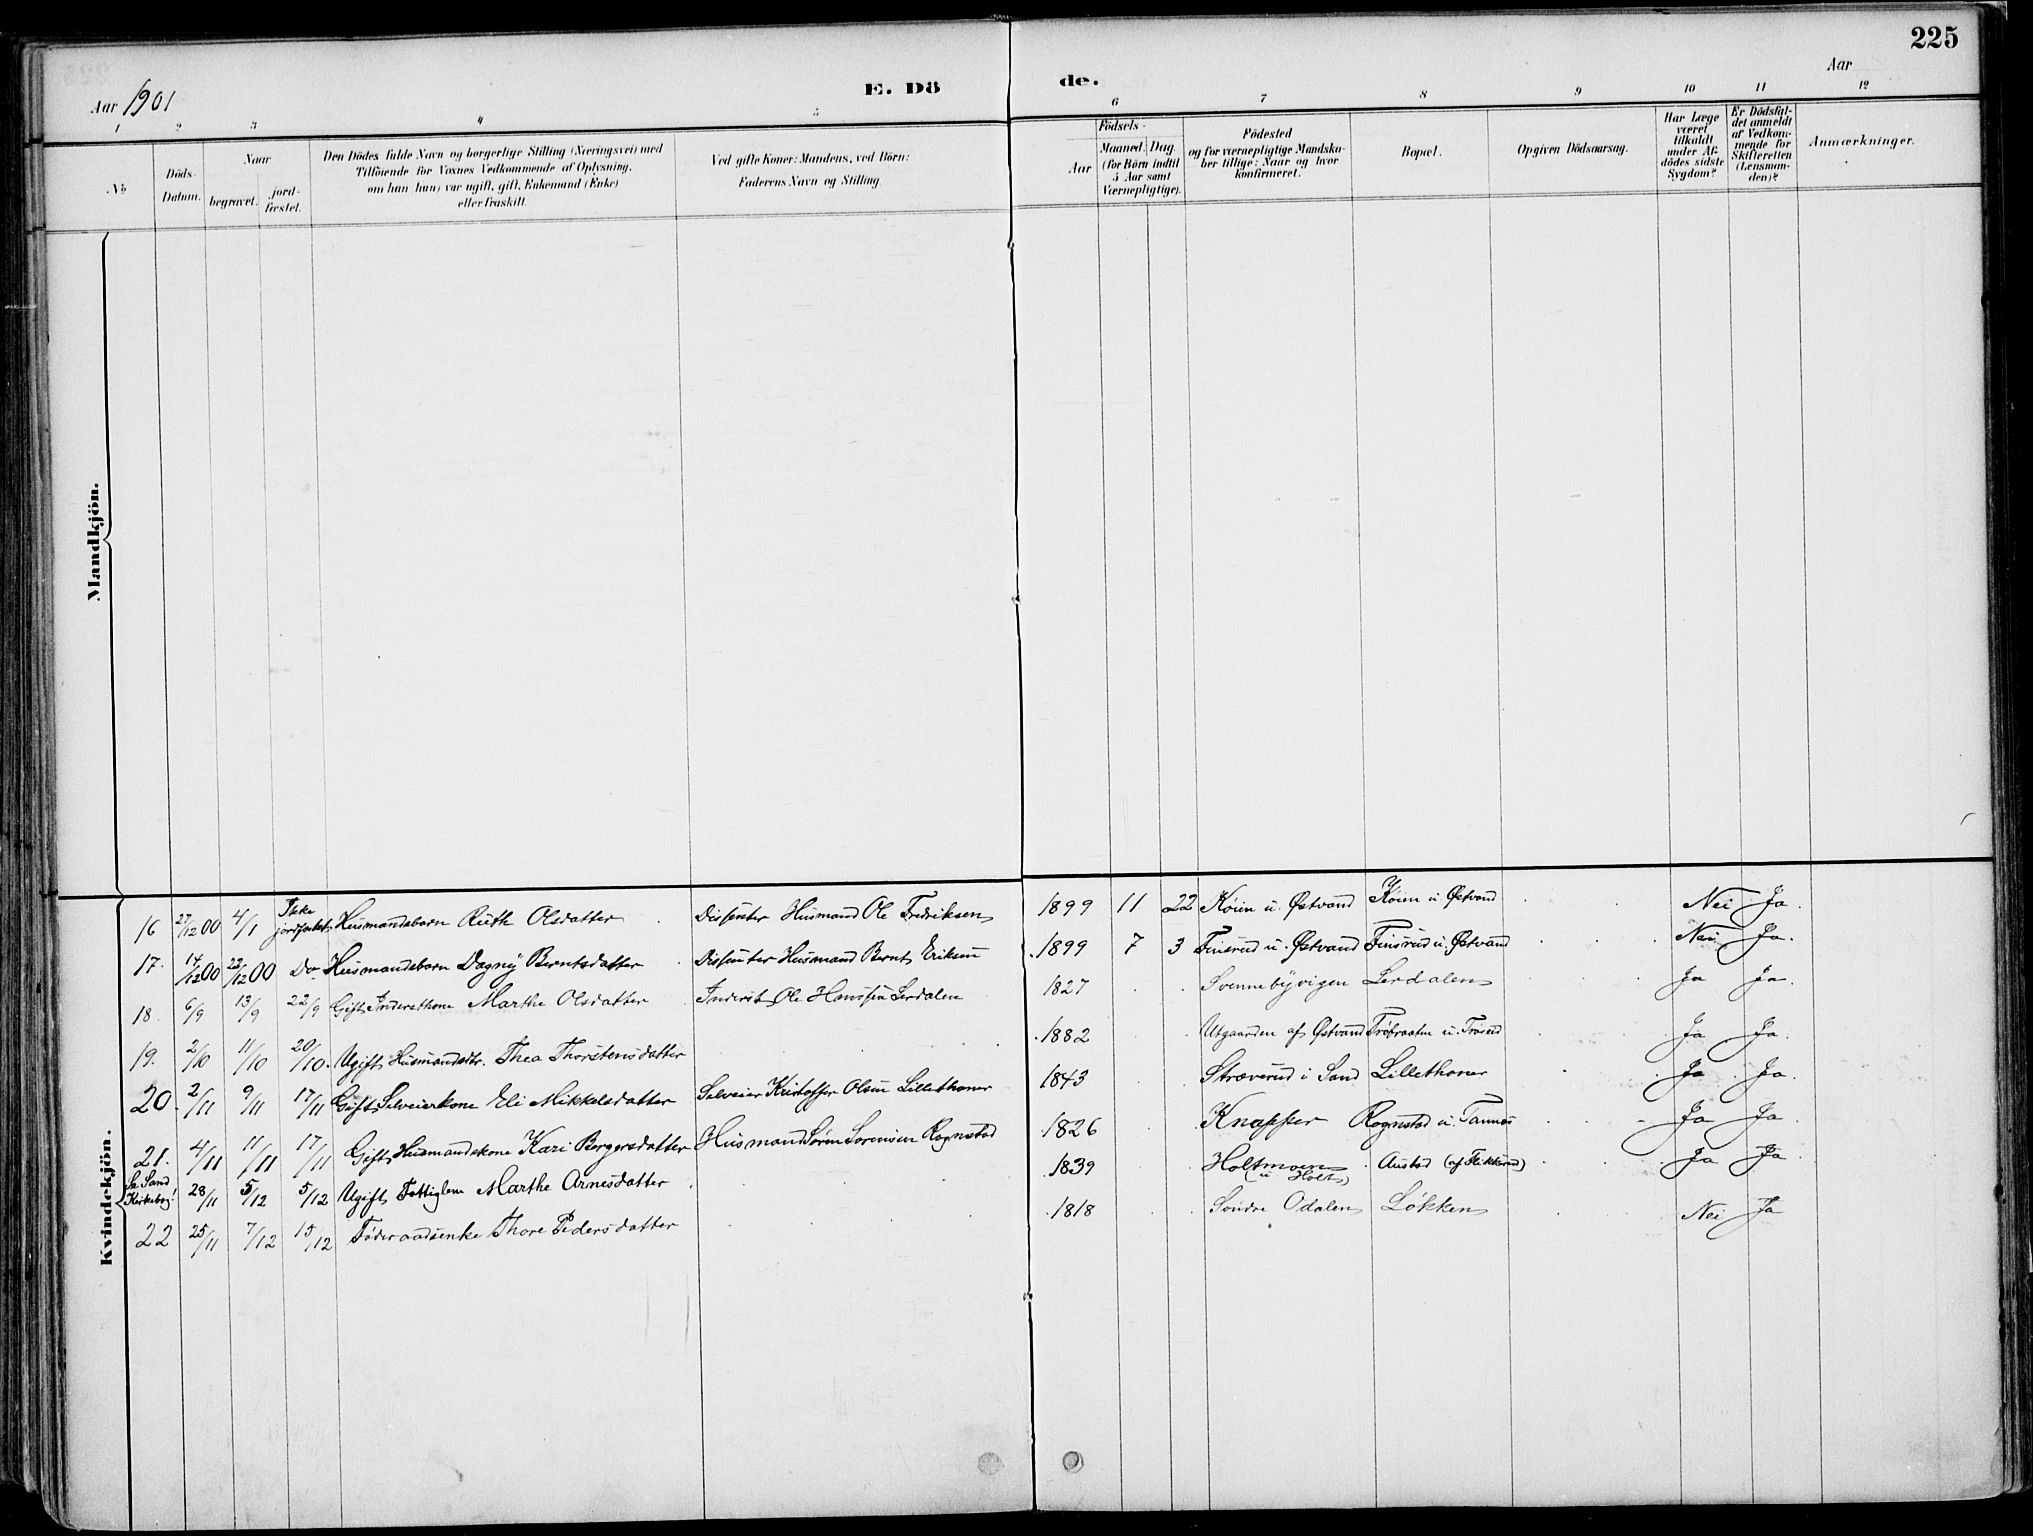 225
Aar 1901
E. Döde.
Aar
1 2 3 4 5 6 7 8 9 10 11 12
No
Döds-Datum.
Naar
begravet.
jordfæstet.
Den Dödes fulde Navn og borgerlige Stilling (Næringsvei) med Tilföiende for Voxnes Vedkommende af Oplysning, om han (hun) var ugift, gift, Enkemand (Enke) eller fraskilt.
Ved gifte Koner: Mandens, ved Börn: Faderens Navn og Stilling.
Födsels-
Aar
Maaned. Dag
(for Börn indtil 5 Aar samt Værnepligtige).
Födested og for værnepligtige Mandskaber tillige: Naar og hvor konfirmeret.
Bopæl.
Opgiven Dödsaarsag.
Har Læge været tilkaldt under Afdödes sidste Sygdom?
Er Dödsfaldet anmeldt af Vedkommende for Skifteretten (Lensmanden)?
Anmærkninger.
Mandkjön.
Kvindekjön.
16 27/12 00 4/1 Ikke jordfæstet Husmandsbarn Ruth Olsdatter Dissenter Husmand Ole Fredriksen 1899 11 22 Köien u. Østvand Köien u Østvand Nei Ja.
17. 14/12 00 22/12 00 Do Husmandsbarn Dagny Berntsdatter Dissenter Husmand Bernt Eriksen 1899 7 3 Finsrud u. Østvand Finsrud u. Østvand Nei Ja.
18. 6/9 13/9 22/9 Gift Inderstkone Marthe Olsdatter Inderst Ole Hanssen Lerdalen 1827 Svennebyvigen Lerdalen Ja Ja.
19. 2/10 11/10 20/10. Ugift Husmandsdtr. Thea Thorstensdatter 1882 Utgaarden af Østvand Tröbraaten u. Trösrud Ja Ja.
20. 2/11 9/11 17/11 Gift Selveierkone Eli Mikkelsdatter Selveier Kristoffer Olsen Lillethoner 1843 Stræverud i Sand Lillethoner Ja Ja.
21. 4/11 11/11 17/11 Gift Husmandskone Kari Borgersdatter Husmand Sören Sorensen Rognstad 1826 Knapper Rognstad u. Tannes Ja Ja
Se Sand Kirkebog! 28/11 5/12 5/12 Ugift Fattiglem Marthe Arnesdatter 1839 Holtmoen (u Holt) Austad (af Flikkerud) Ja Ja
22 25/11 7/12 15/12 Föderaadsenke Thore Pedersdatter 1818 Söndre Odalen Lökken Nei Ja